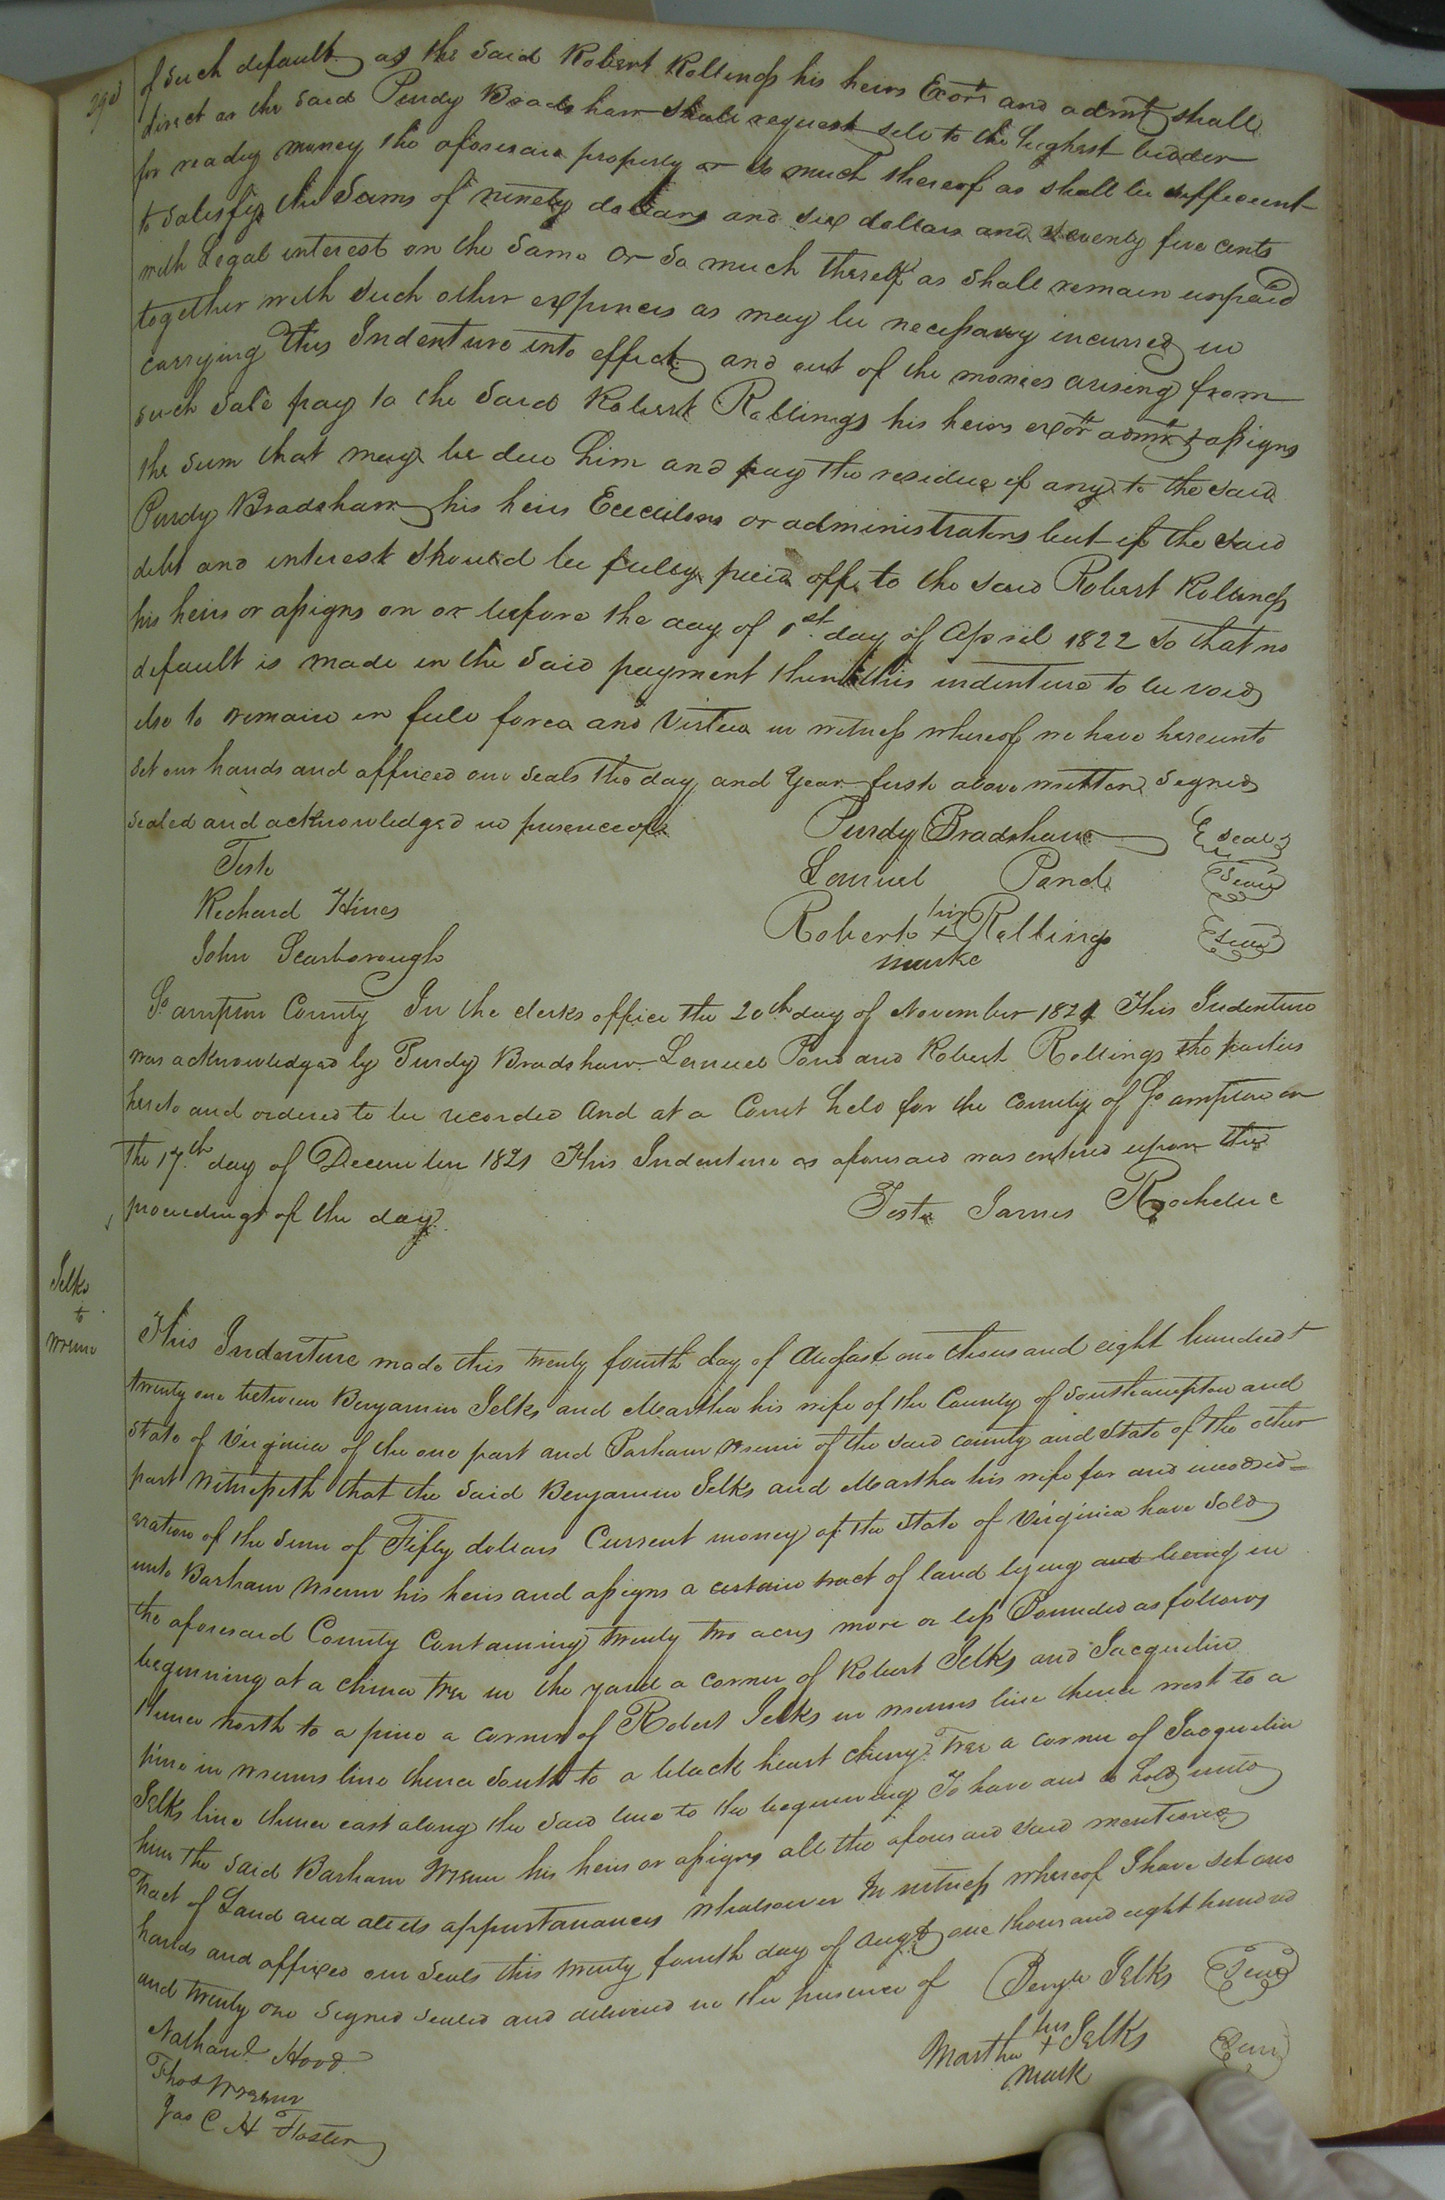 of such default as the said Robert Rollings his heirs Exors and admrs shall
direct or the said Purdy Bradshaw shall request sele to the highest bidder
for ready money the aforesaid property or so much thereof as shall be sufficient
to satisfy the Sums of ninety dollars and six dollars and seventy five cents
with Legal interest on the same or so much thereof as shall remain unpaid
together with such other expences as may be necessary incurred in
carrying this Indenture into effect and out of the monies arising from
such sale pay to the said Robert Rollings his heirs exors admrs & assigns
the sum that may be due him and pay the residue if any to the said
Purdy Bradshaw his heirs Executors or administrators but if the said
debt and interest should be fully paid off to the said Robert Rollings
his heirs or assigns on or before the day of 1st day of April 1822 so that no
default is made in the said payment then this indenture to be void
else to remain in full force and Virtue in witness whereof we have hereunto
set our hands and affixed our seals the day and Year first above written signed
sealed and acknowledged in presence of
Purdy Bradshaw seal
Test
Lemuel Pond seal
Richard Hines
Robert his + mark Rollings seal
John Scarborough
So ampton County In the clerks office the 20th day of November 1821 This Indenture
was acknowledged by Purdy Bradshaw Lemuel Pond and Robert Rollings the parties
hereto and ordered to be recorded And at a Court held for the county of So ampton on
the 17th day of December 1821 This Indenture as aforesaid was entered upon the
proceedings of the day.
Teste James Rochelle C
Jelks
to
Wrenn
This Indenture made this twenty fourth day of August one thousand eight hundred &
twenty one between Benjamin Jelks and Martha his wife of the County of Southampton and
State of Virginia of the one part and Barham Wrenn of the said county and State of the other
part Witnesseth that the said Benjamin Jelks and Martha his wife for and inconsid=
eration of the sum of Fifty dollars Current money of the State of Virginia have sold
unto Barham Wrenn his heirs and assigns a certain tract of land lying and being in
the aforesaid County Containing twenty two acres more or less Bounded as follows
beginning at a china tree in the yard a corner of Robert Jelks and Jacquelin
thence north to a pine a corner of Robert Jelks in wrenns line thence west to a
pine in wrenns line thence south to a black heart cherry Tree a corner of Jacquelin
Jelks line thence east along the said line to the beginning To have and to hold unto
him the said Barham Wrenn his heirs or assigns all the afore said said mentioned
Tract of Land and all its appurtanances whatsoever In witness whereof I have set our
hands and affixed our seals this twenty fourth day of Augst one thousand eight hundred
and twenty one Signed sealed and delivered in the presence of
Benjn Jelks seal
Nathanl Hood
Martha her + mark Jelks seal
Thos Wrenn
Jas C H Foster